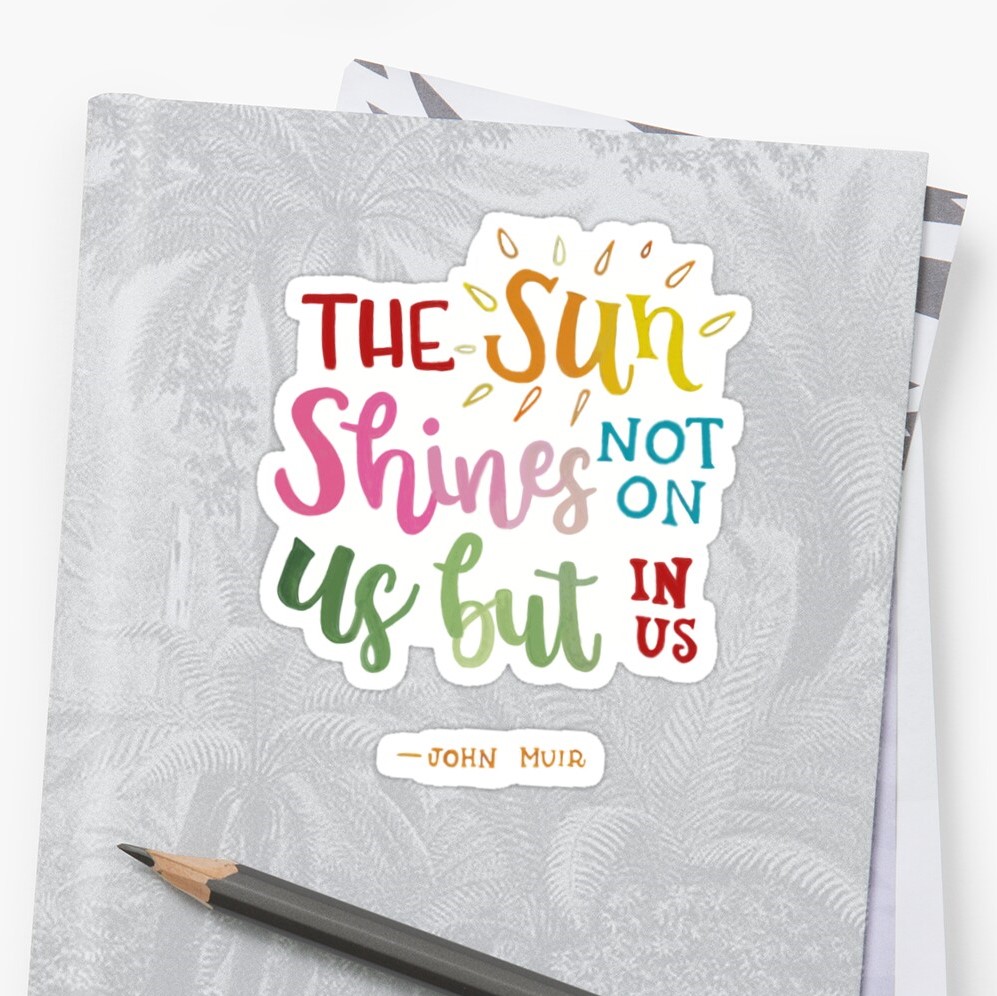 THE Sun
Shines NOT ON
us but IN US
—JOHN MUIR